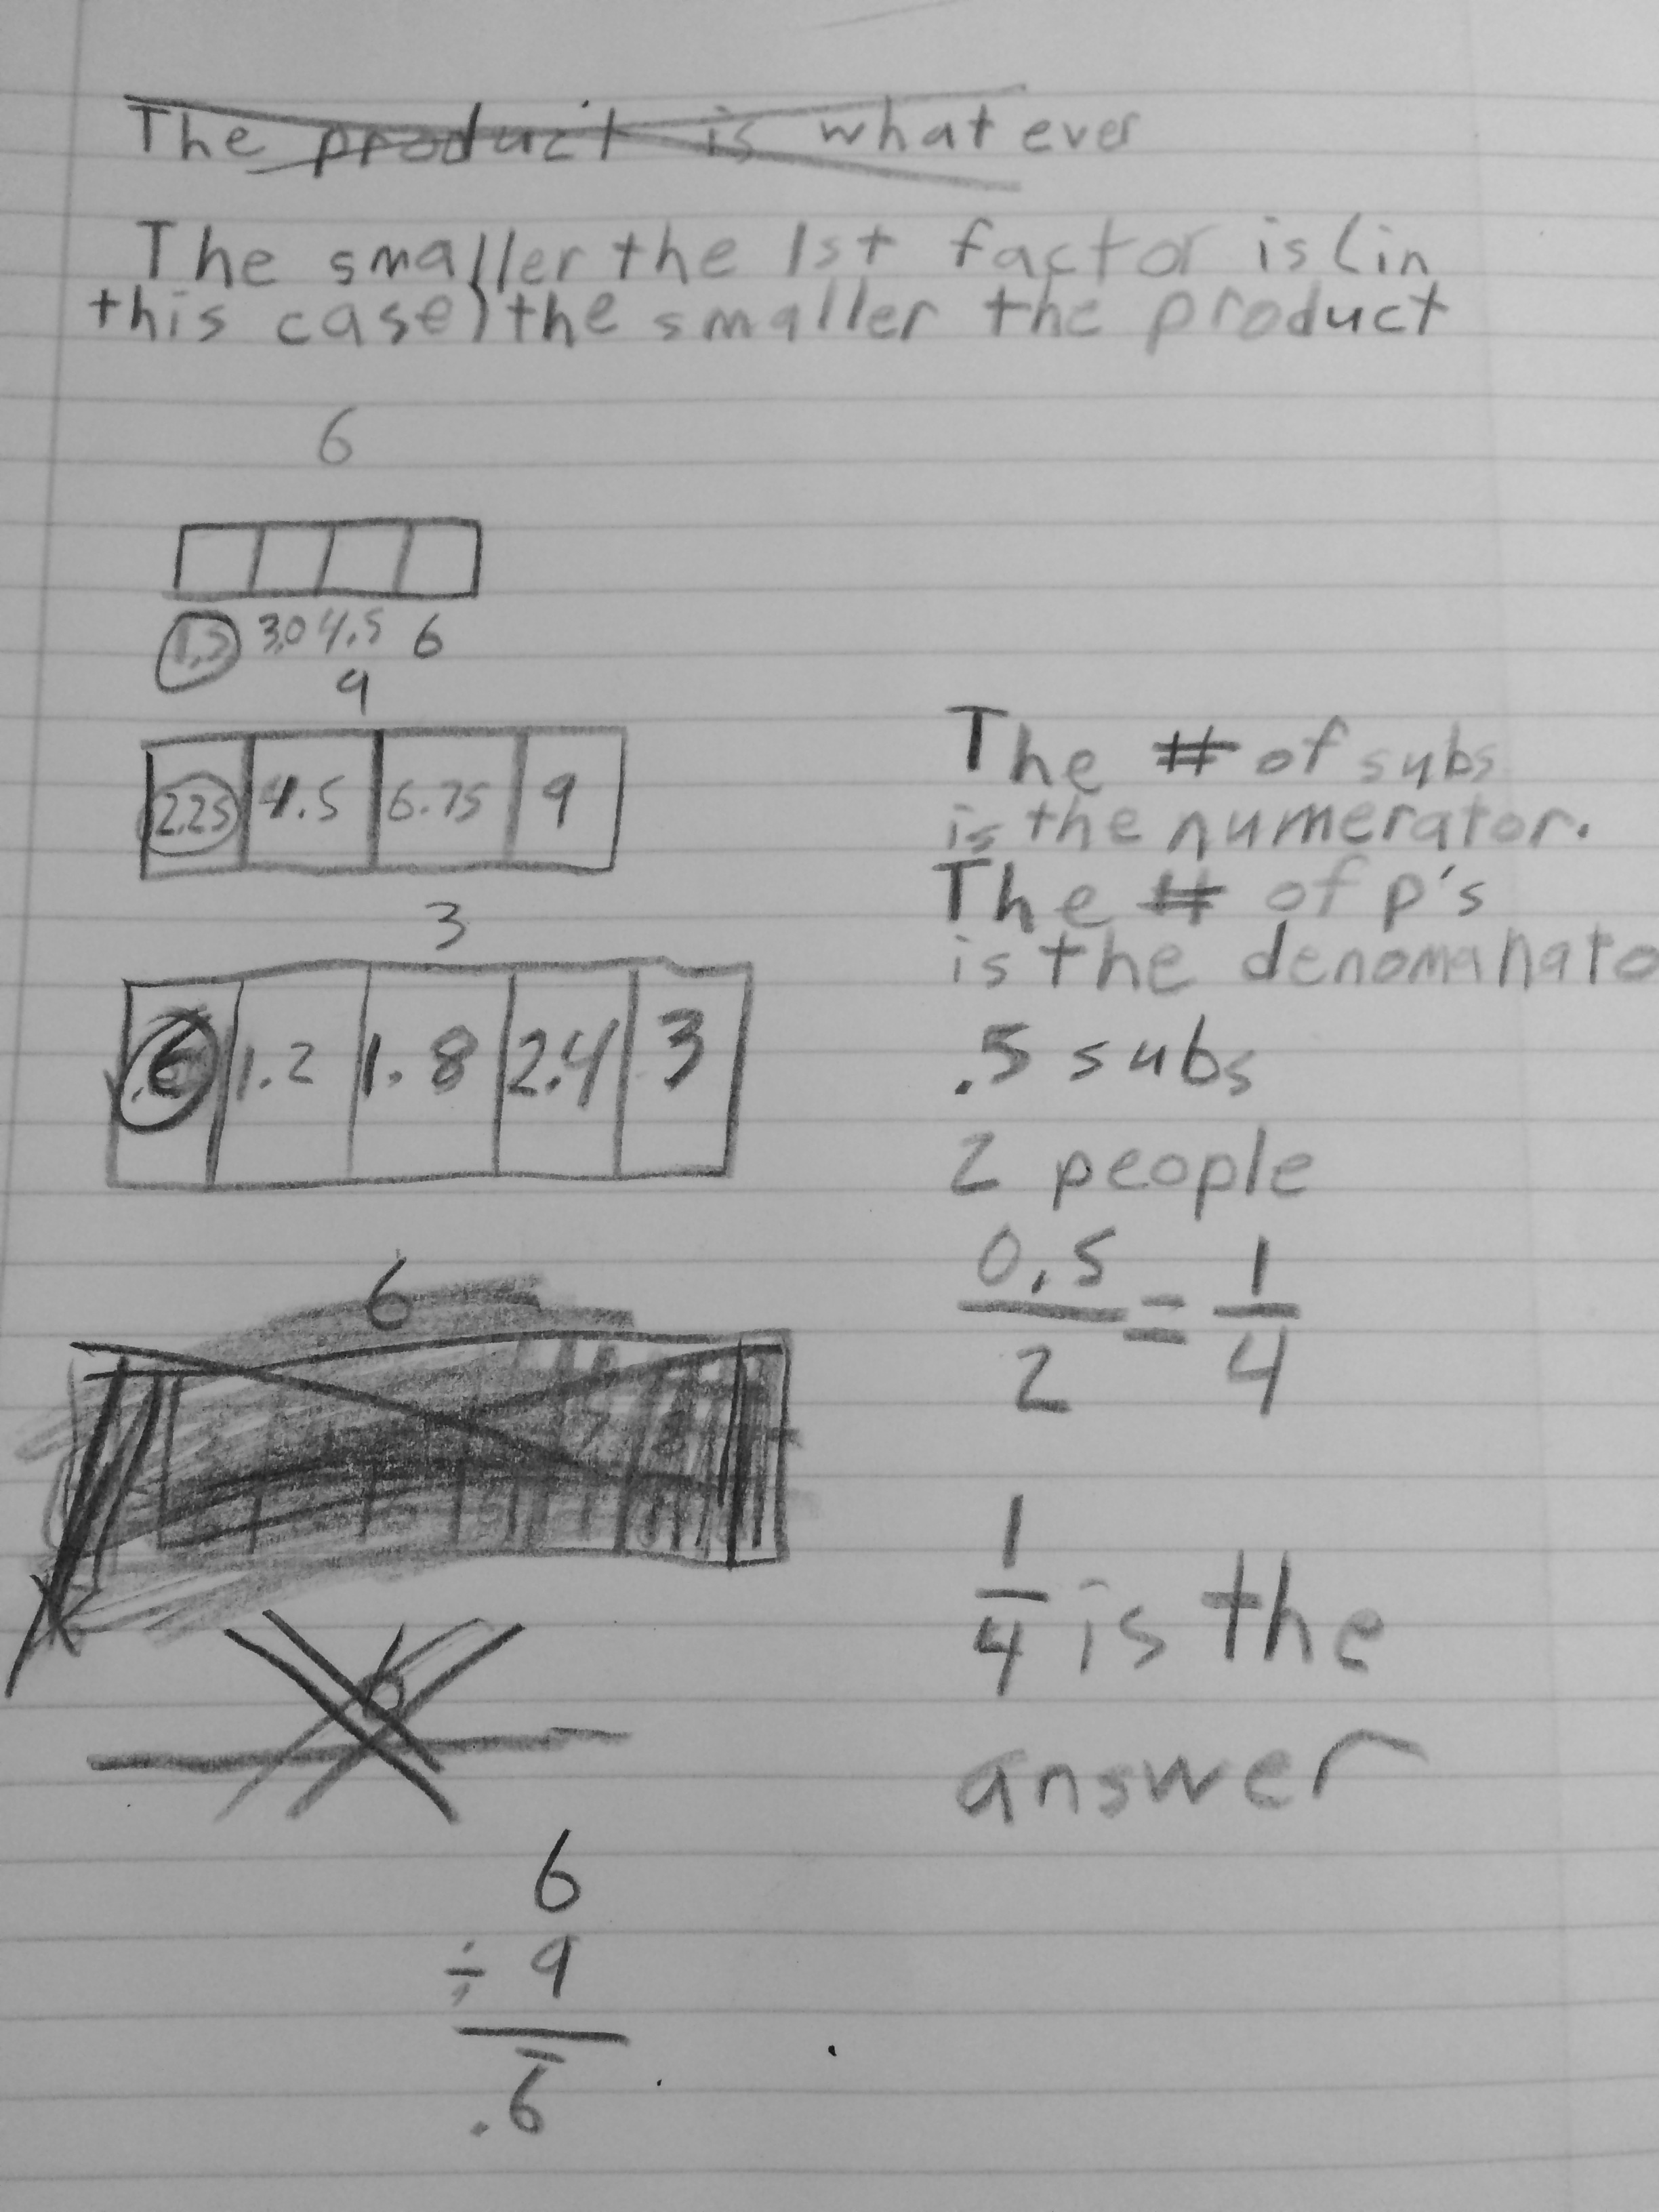 The product is whatever
The smaller the 1st factor is (in
this case) the smaller the product
6
1.5 3.0 4.5 6
9
2.25 4.5 6.75 9
3
.6 1.2 1.8 2.4 3
6
6
6
÷ 9
.6̅
The # of subs
is the numerator.
The # of p's
is the denomanato
.5 subs
2 people
0.5/2 = 1/4
1/4 is the
answer